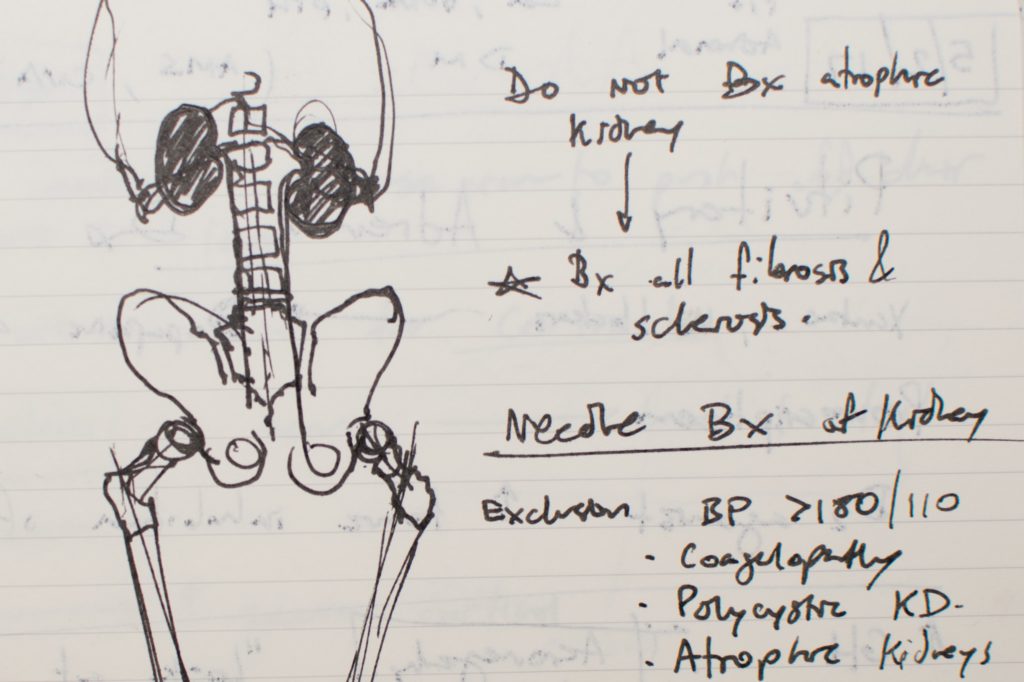 Do not Bx atrophic
Kidney
☆ Bx all fibrosis &
sclerosis.
Needle Bx of Kidney
Exclusion BP >180/110
· Coagulopathy
· Polycystic KD.
· Atrophic Kidneys